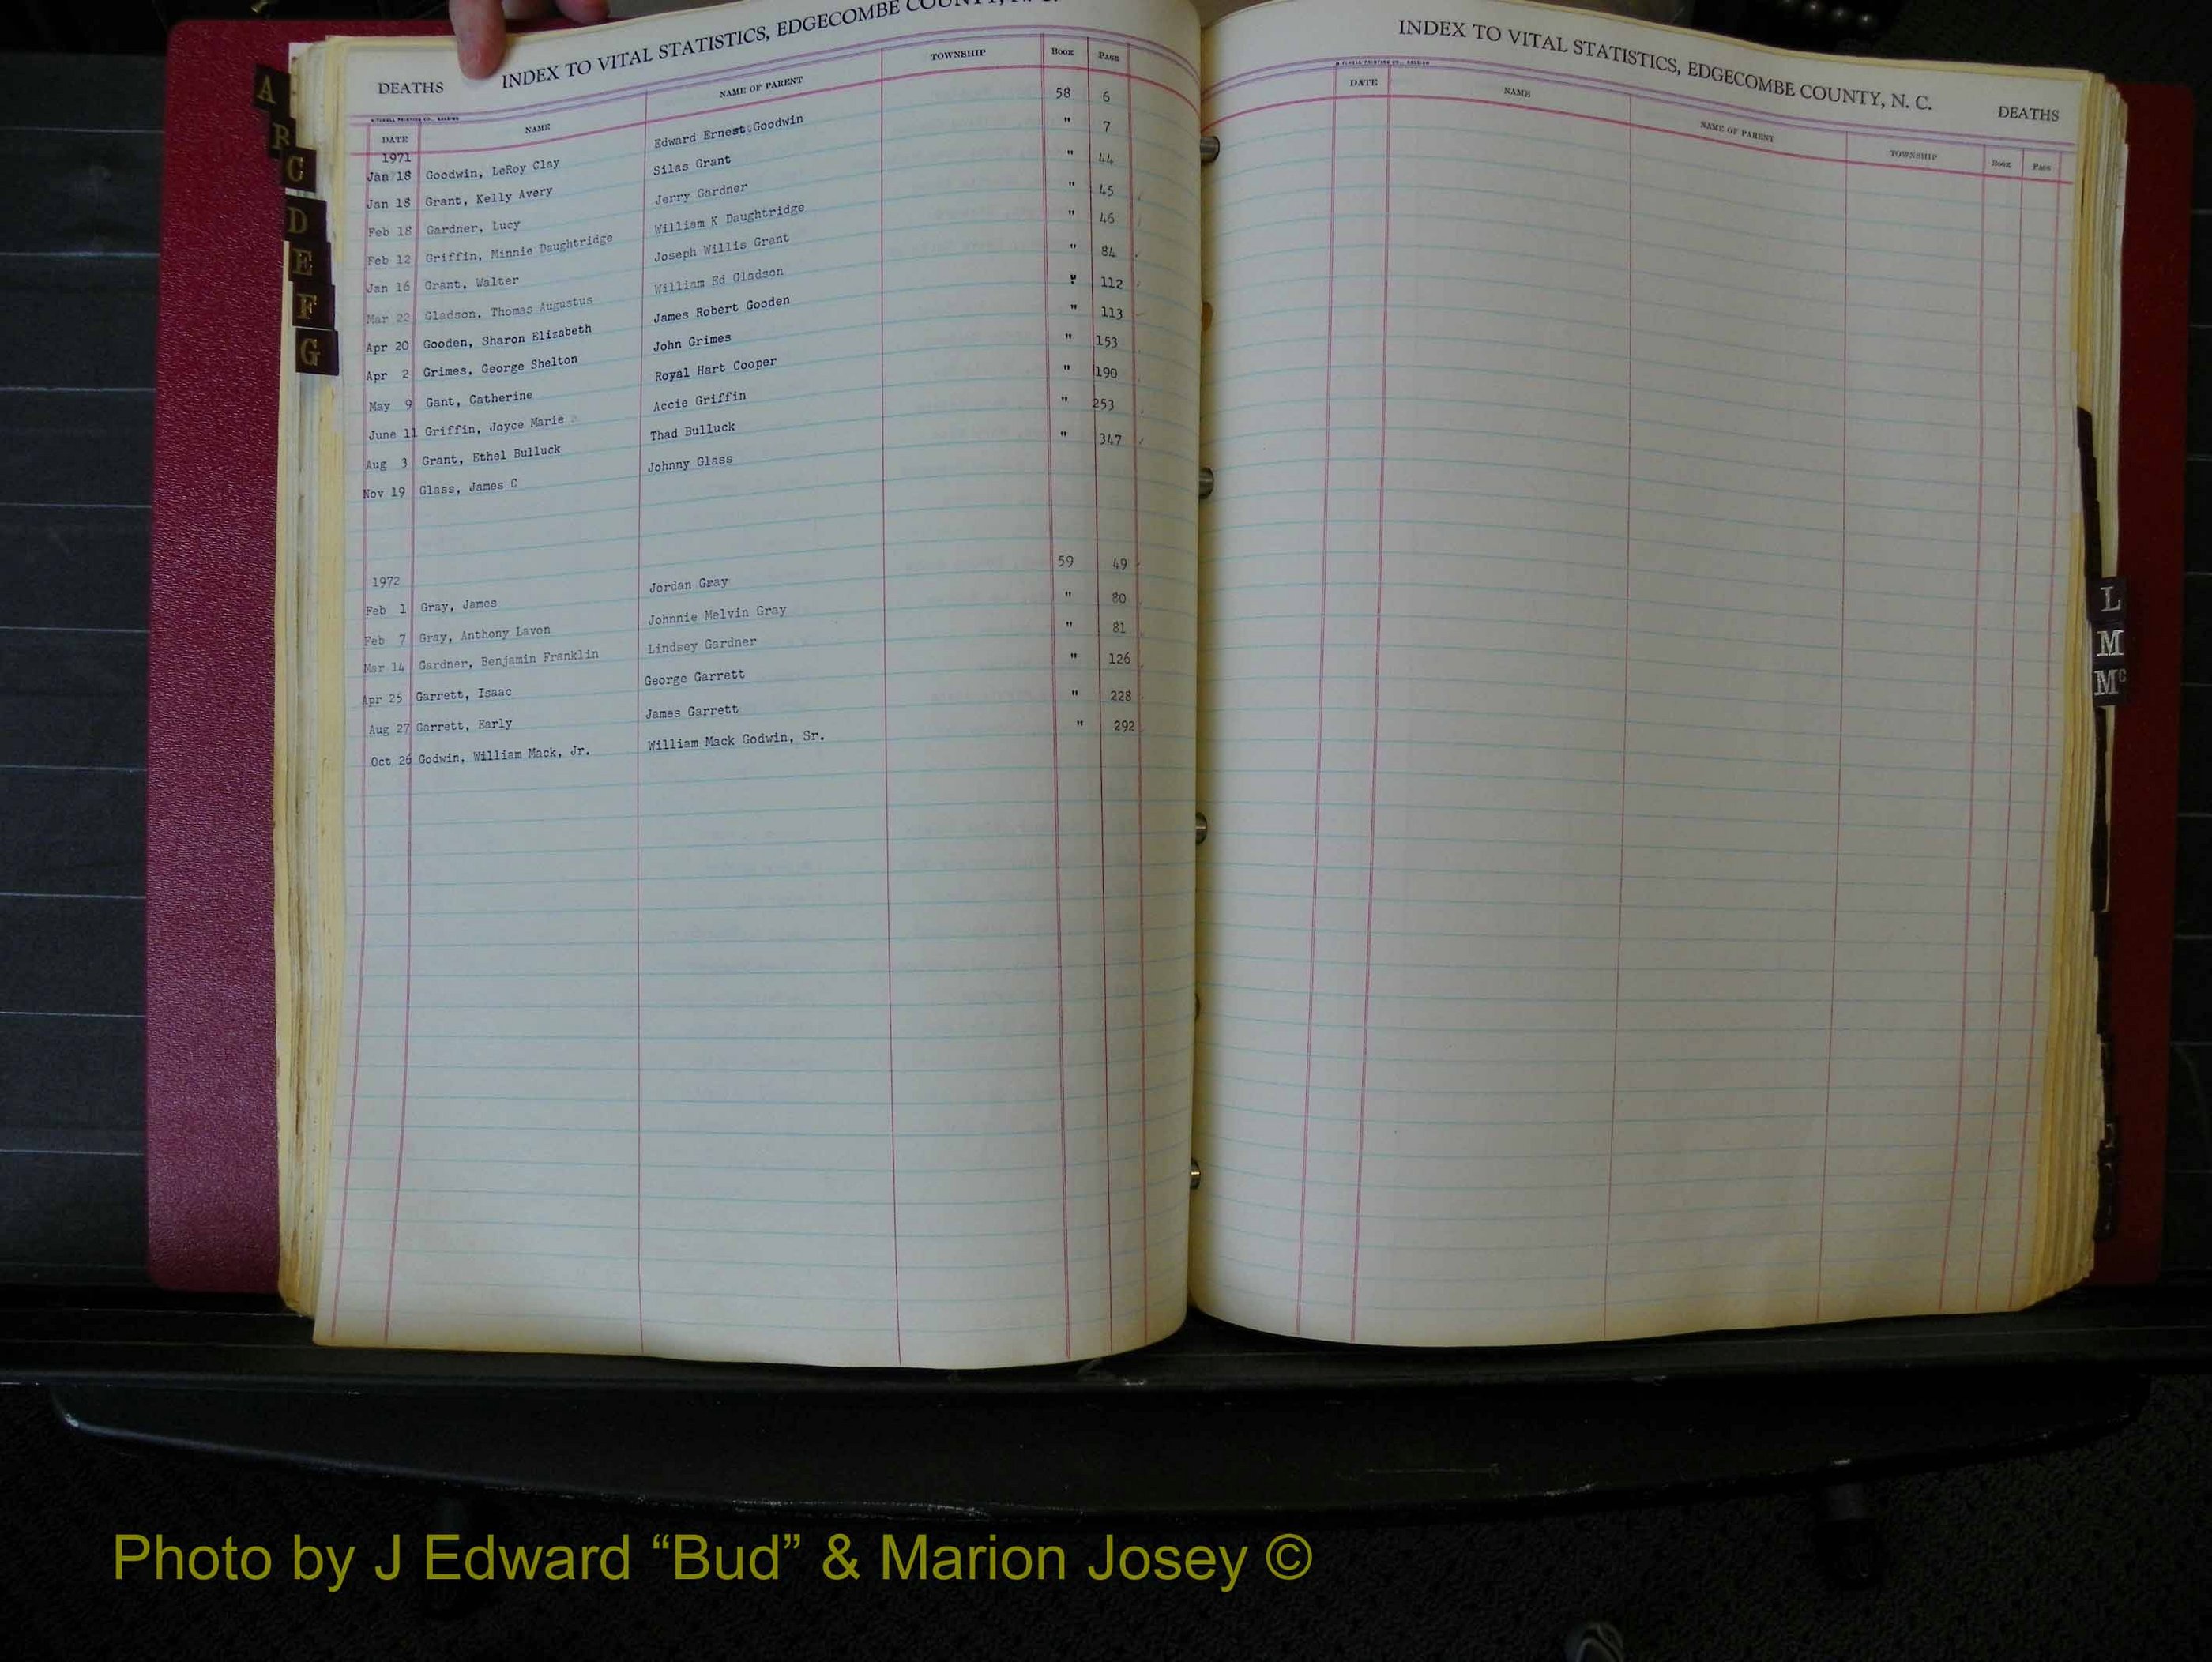 DEATHS INDEX TO VITAL STATISTICS, EDGECOMBE COUNTY, N. C.
MITCHELL PRINTING CO., RALEIGH
DATE NAME NAME OF PARENT TOWNSHIP BOOK PAGE
1971
Jan 18 Goodwin, LeRoy Clay Edward Ernest Goodwin 58 6
Jan 18 Grant, Kelly Avery Silas Grant " 7
Feb 18 Gardner, Lucy Jerry Gardner " 44
Feb 12 Griffin, Minnie Daughtridge William K Daughtridge " 45
Jan 16 Grant, Walter Joseph Willis Grant " 46
Mar 22 Gladson, Thomas Augustus William Ed Gladson " 84
Apr 20 Gooden, Sharon Elizabeth James Robert Gooden " 112
Apr 2 Grimes, George Shelton John Grimes " 113
May 9 Gant, Catherine Royal Hart Cooper " 153
June 11 Griffin, Joyce Marie Accie Griffin " 190
Aug 3 Grant, Ethel Bulluck Thad Bulluck " 253
Nov 19 Glass, James C Johnny Glass " 347
1972
Feb 1 Gray, James Jordan Gray 59 49
Feb 7 Gray, Anthony Lavon Johnnie Melvin Gray " 80
Mar 14 Gardner, Benjamin Franklin Lindsey Gardner " 81
Apr 25 Garrett, Isaac George Garrett " 126
Aug 27 Garrett, Early James Garrett " 228
Oct 26 Godwin, William Mack, Jr. William Mack Godwin, Sr. " 292
A
B
C
D
E
F
G
INDEX TO VITAL STATISTICS, EDGECOMBE COUNTY, N. C. DEATHS
MITCHELL PRINTING CO., RALEIGH
DATE NAME NAME OF PARENT TOWNSHIP BOOK PAGE
L
M
Mc
Photo by J Edward “Bud” & Marion Josey ©